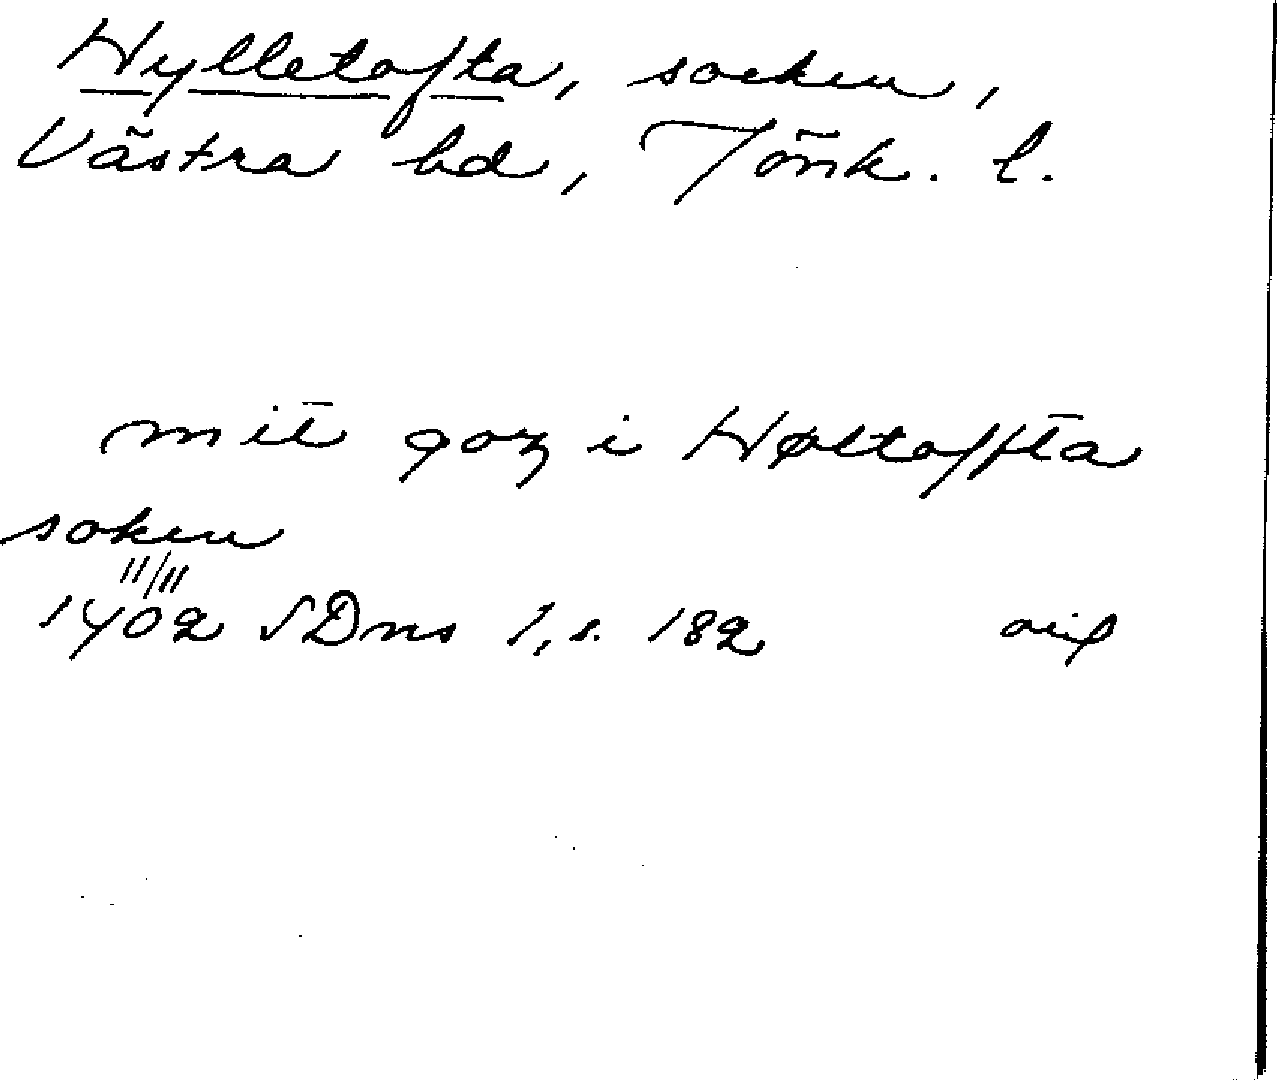 Hylletofta, socken,
Västra hd, Jönk. l.
mit goz i Høltoffta
soken
11/11
1402 SDns 1, s. 182 orig